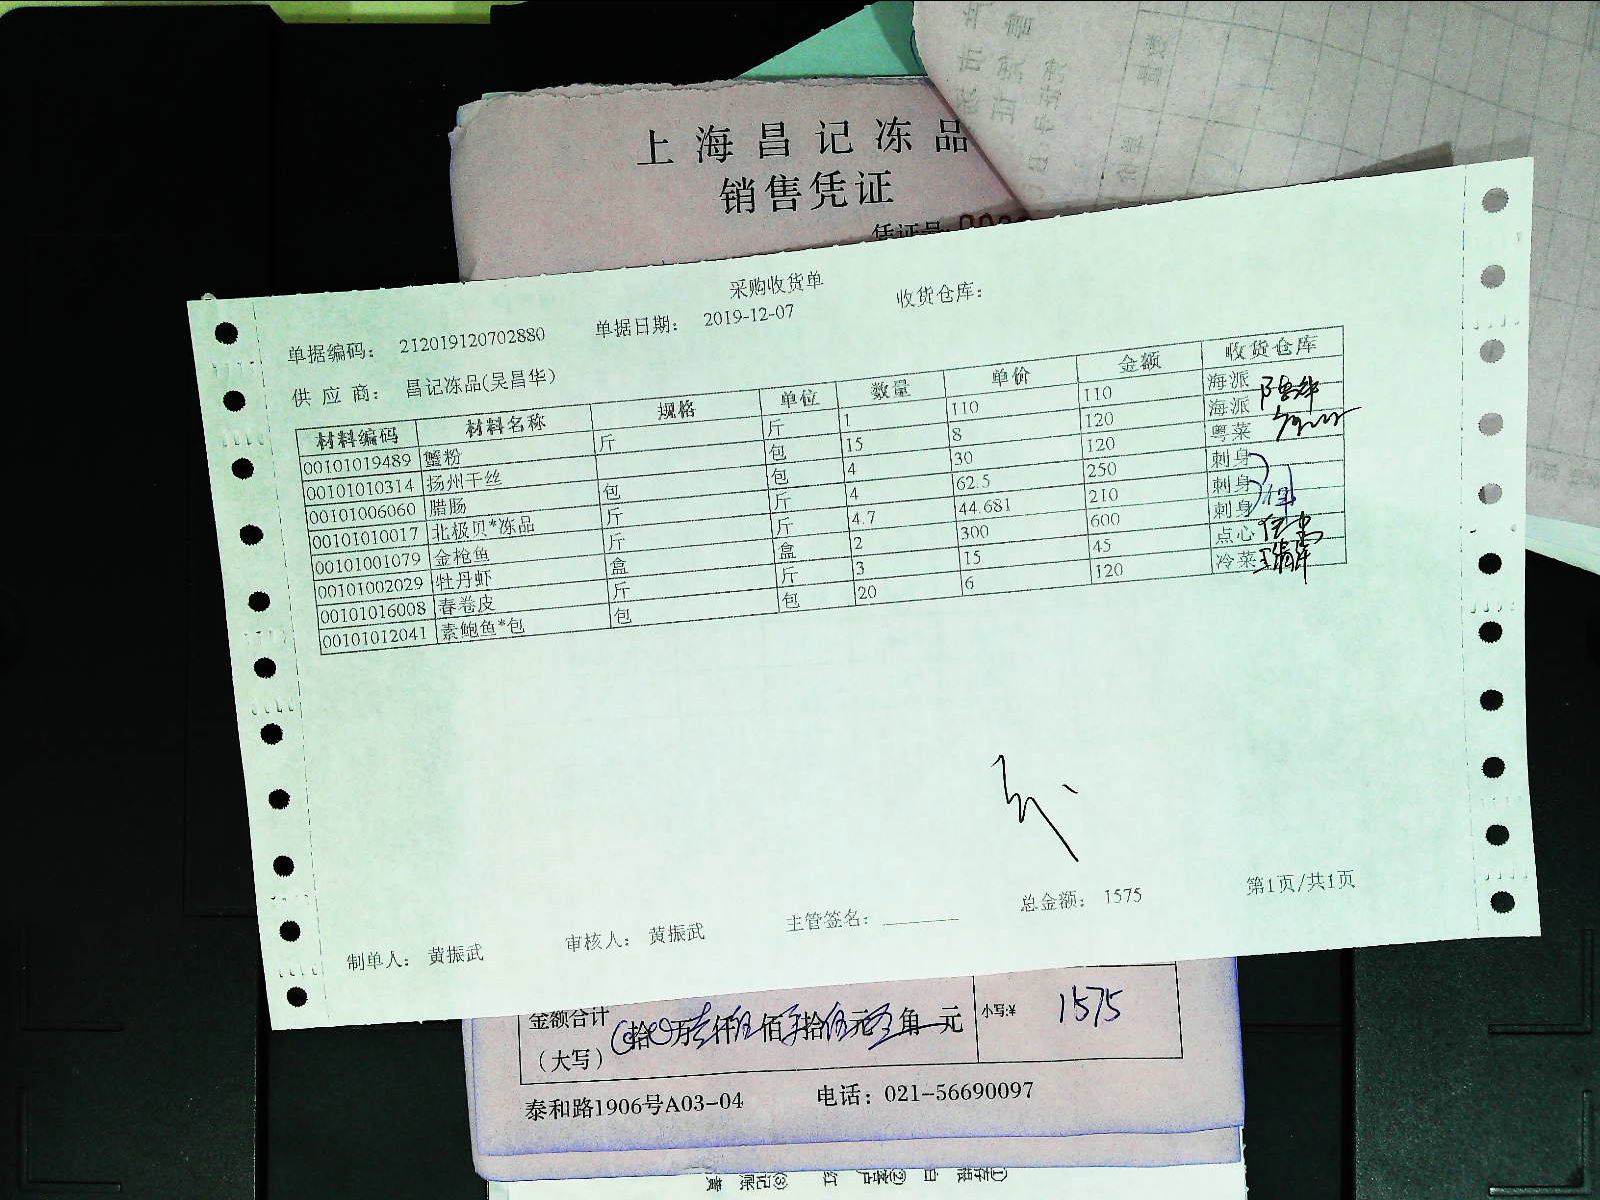 上海昌记冻品
销售凭证
凭证号:
采购收货单
单据编码： 212019120702880 单据日期： 2019-12-07 收货仓库：
供 应 商： 昌记冻品(吴昌华)
材料编码 材料名称 规格 单位 数量 单价 金额 收货仓库
00101019489 蟹粉 斤 斤 1 110 110 海派
00101010314 扬州干丝 包 15 8 120 海派
00101006060 腊肠 包 包 4 30 120 粤菜
00101010017 北极贝*冻品 斤 斤 4 62.5 250 刺身
00101001079 金枪鱼 斤 斤 4.7 44.681 210 刺身
00101002029 牡丹虾 盒 盒 2 300 600 刺身
00101016008 春卷皮 斤 斤 3 15 45 点心
00101012041 素鲍鱼*包 包 包 20 6 120 冷菜
总金额： 1575 第1页/共1页
制单人： 黄振武 审核人： 黄振武 主管签名：
金额合计 拾 万 仟 佰 拾 元 角 元 小写:¥ 1575
（大写）
泰和路1906号A03-04 电话：021-56690097